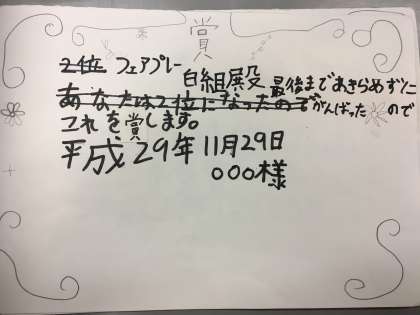 賞
2位 フェアプレー
白組殿 最後まであきらめずに
あなたは2位になったのでがんばったので
これを賞します。
平成29年 11月29日
○○○様